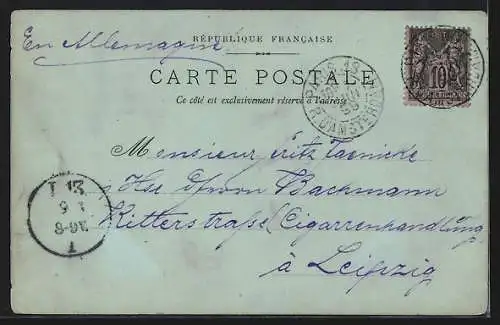 En Allemagne
RÉPUBLIQUE FRANÇAISE
CARTE POSTALE
Ce côté est exclusivement réservé à l'adresse
PARIS
R. D'AMSTERDAM
10
Monsieur Fritz Taenicke
Bachmann
Ritterstraße (Cigarrenhandlung
à Leipzig